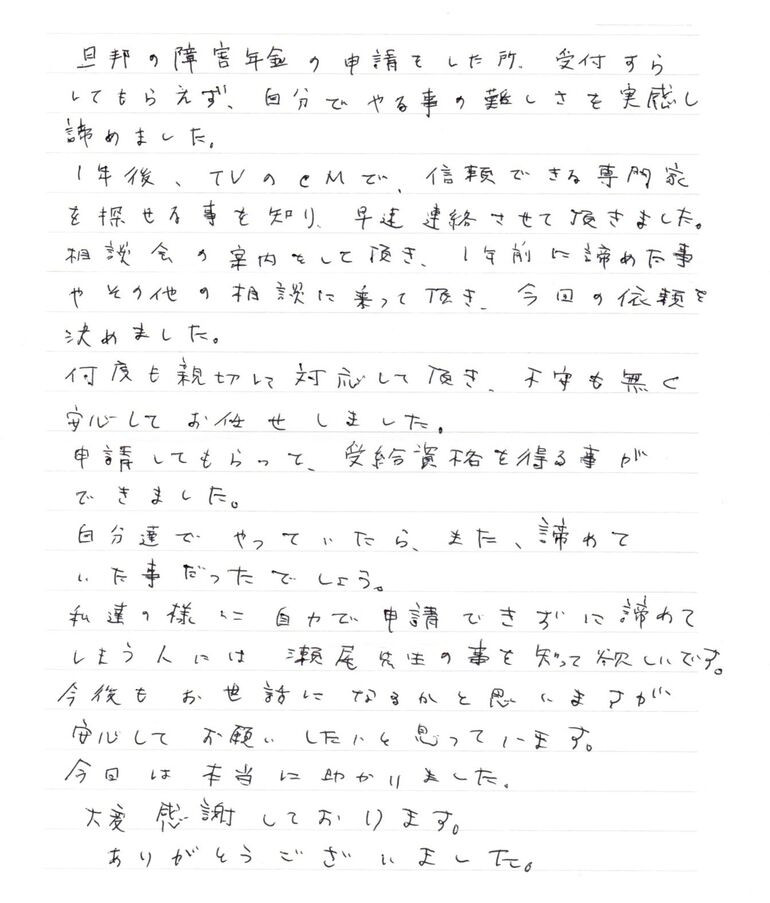 旦那の障害年金の申請をした所、受付すら
してもらえず、自分でやる事の難しさを実感し
諦めました。
1年後、TVのCMで、信頼できる専門家
を探せる事を知り、早速連絡させて頂きました。
相談会の案内をして頂き、1年前に諦めた事
やその他の相談に乗って頂き、今回の依頼を
決めました。
何度も親切に対応して頂き、不安も無く
安心してお任せしました。
申請してもらって、受給資格を得る事が
できました。
自分達でやっていたら、また、諦めて
いた事だったでしょう。
私達の様に自力で申請できずに諦めて
しまう人には瀬尾先生の事を知って欲しいです。
今後もお世話になるかと思いますが
安心してお願いしたいと思っています。
今回は本当に助かりました。
大変感謝しております。
ありがとうございました。